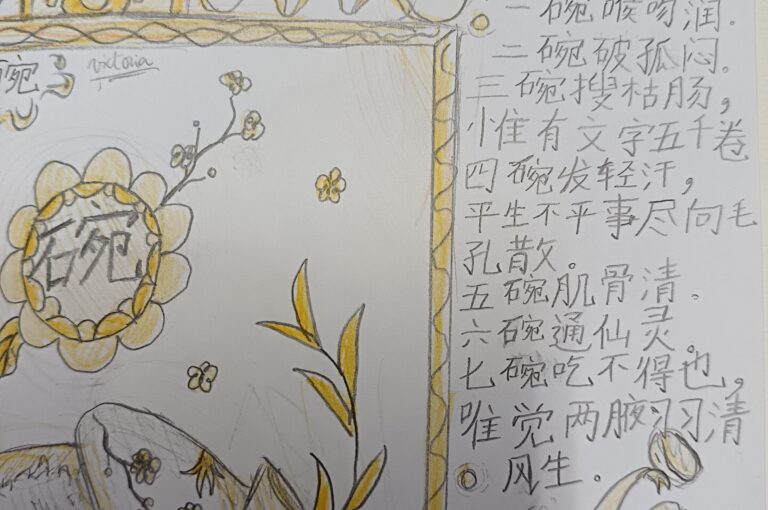 碗
victoria
碗
一碗喉吻润。
二碗破孤闷。
三碗搜枯肠，
小惟有文字五千卷
四碗发轻汗，
平生不平事尽向毛
孔散。
五碗肌骨清。
六碗通仙灵。
七碗吃不得也，
唯觉两腋习习清
风生。